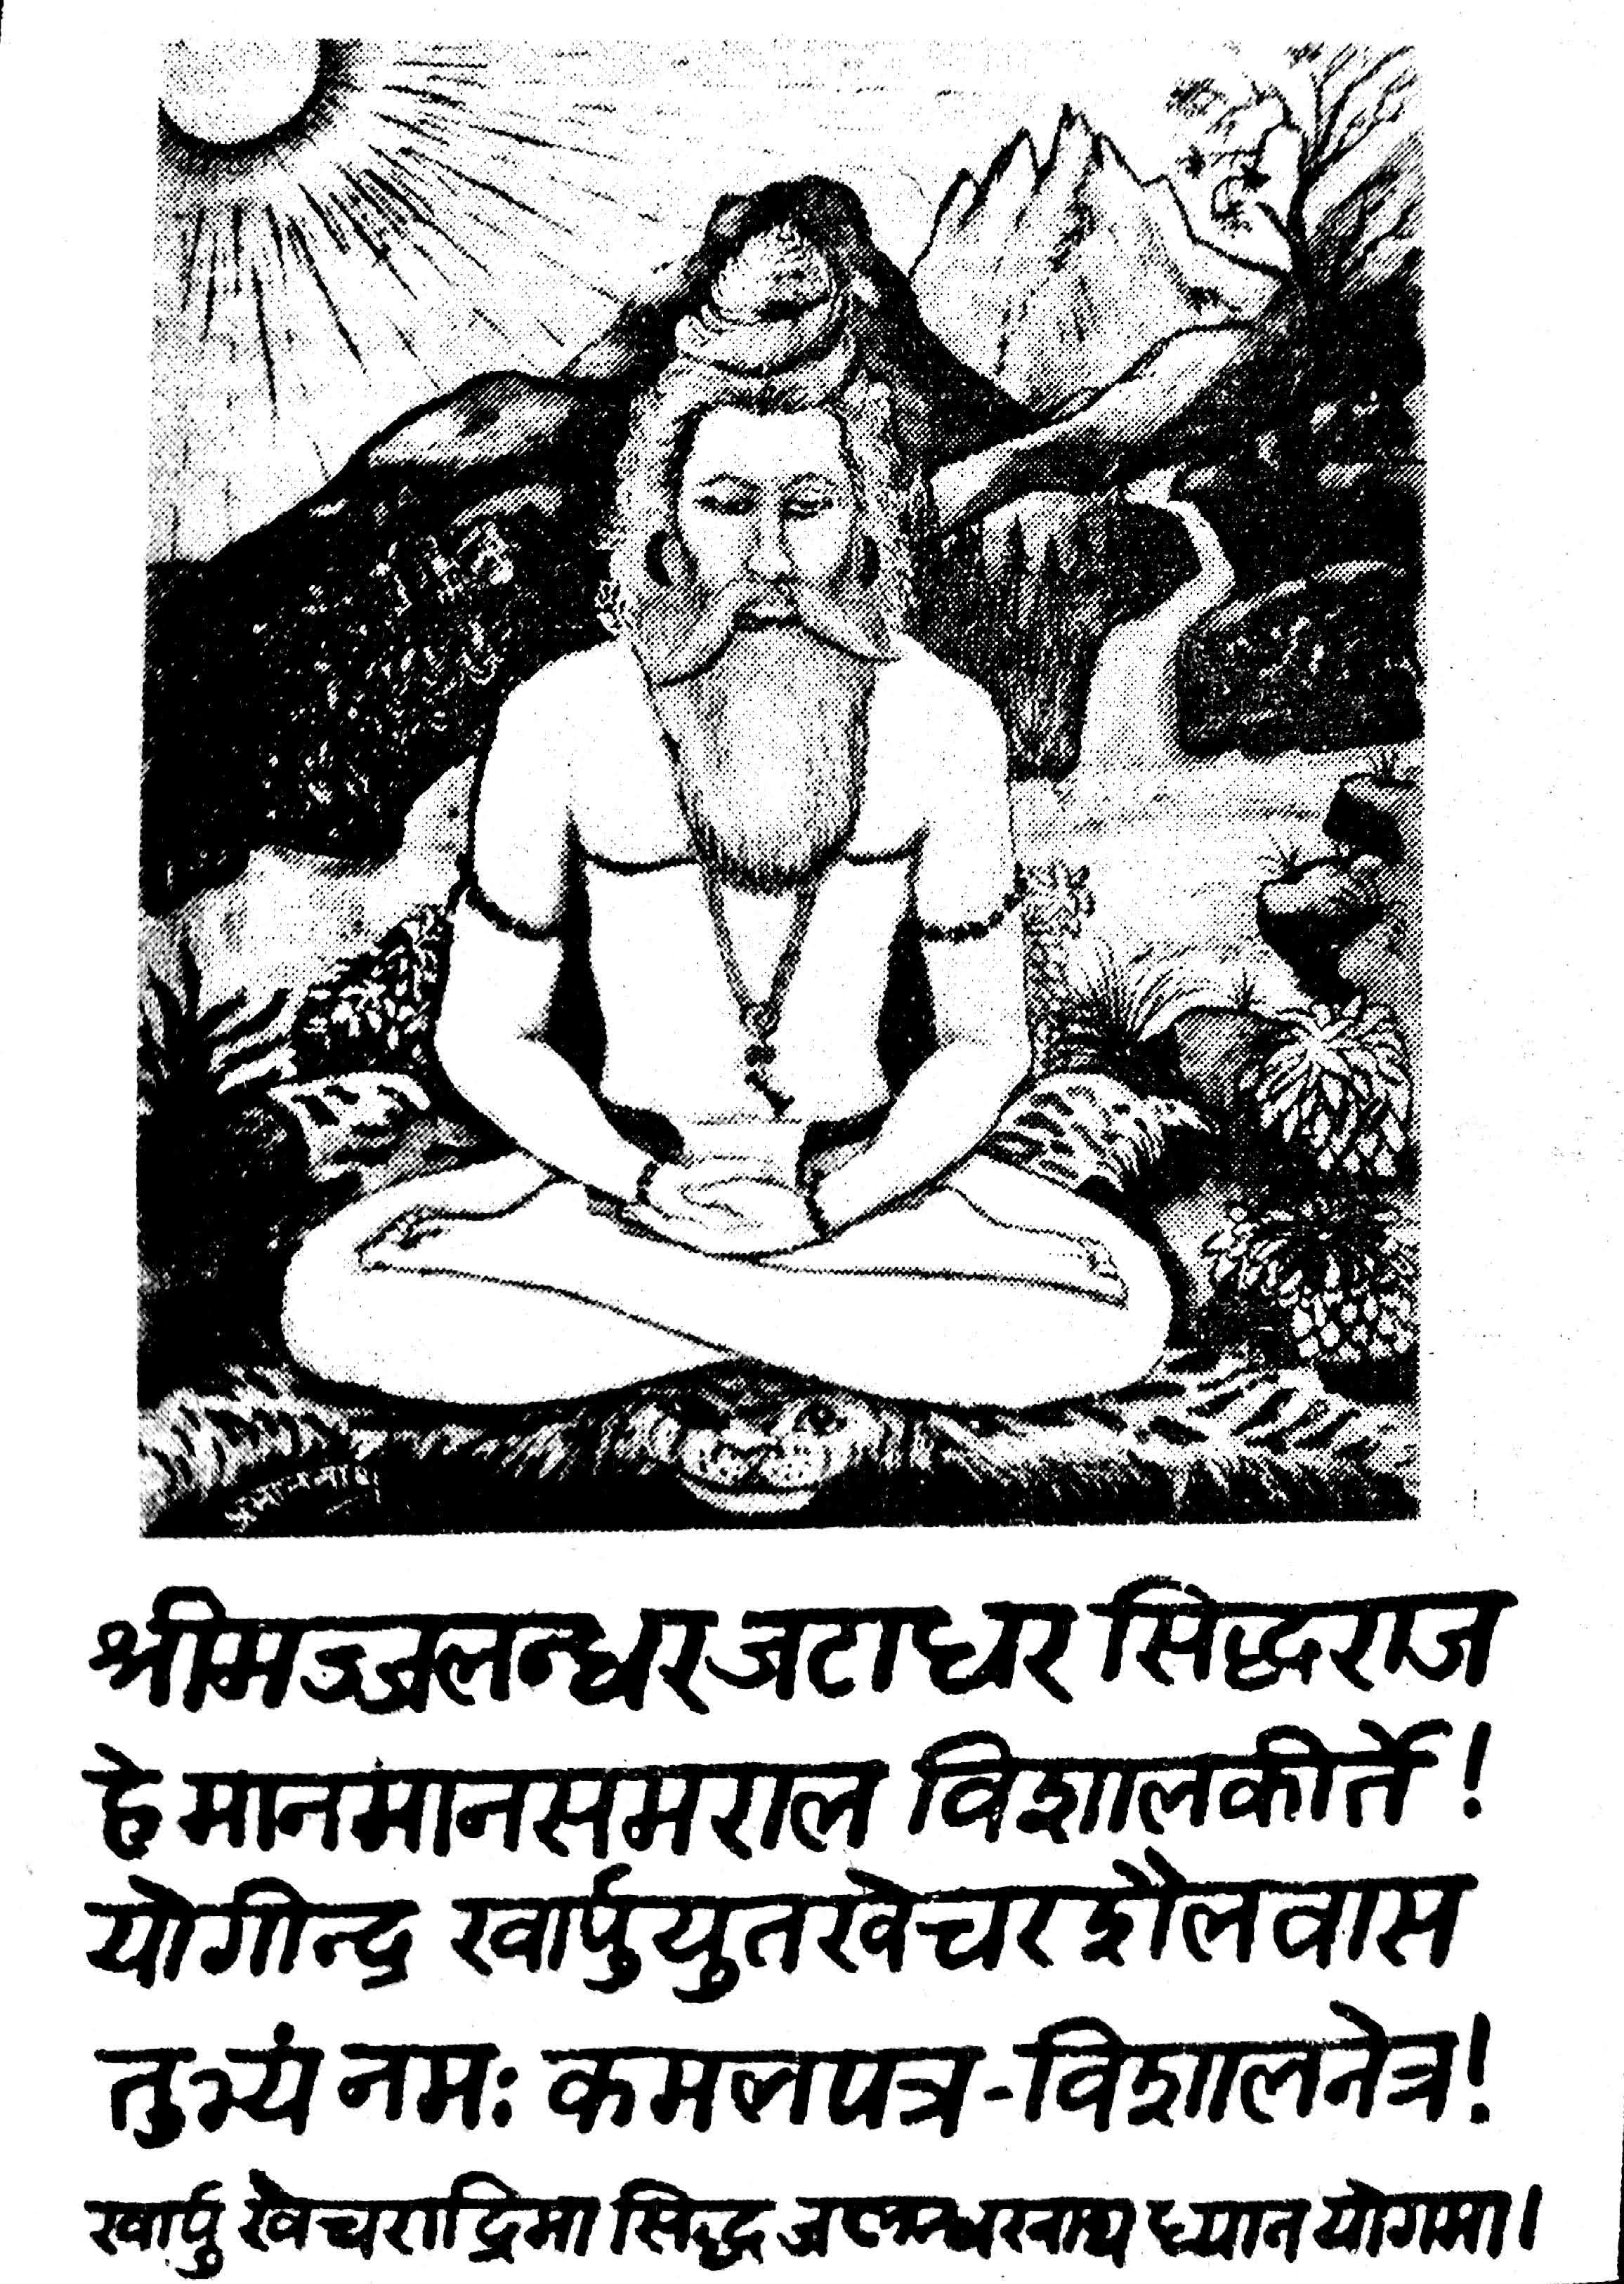 श्रीमज्जलन्धर जटाधर सिद्धराज
हे मानमानसमराल विशालकीर्ते!
योगीन्द्र खार्पुयुतखेचरशैलवास
तुभ्यं नमः कमलपत्र-विशालनेत्र!
खार्पु खेचराद्रिमा सिद्ध जलन्धरनाथ ध्यान योगमा।